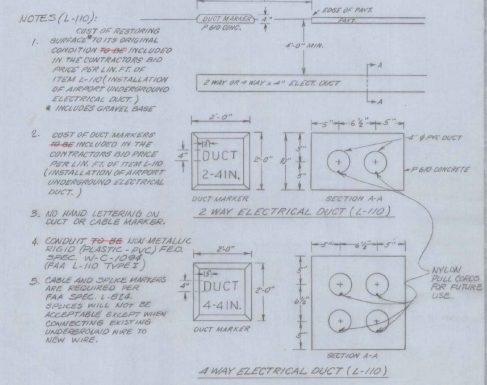 NOTES (L-110):
COST OF RESTORING
1. SURFACE TO ITS ORIGINAL
CONDITION TO BE INCLUDED
IN THE CONTRACTORS BID
PRICE PER LIN. FT. OF
ITEM L-110 (INSTALLATION
OF AIRPORT UNDERGROUND
ELECTRICAL DUCT.)
* INCLUDES GRAVEL BASE
2. COST OF DUCT MARKERS
TO BE INCLUDED IN THE
CONTRACTORS BID PRICE
PER LIN. FT. OF ITEM L-110
(INSTALLATION OF AIRPORT
UNDERGROUND ELECTRICAL
DUCT.)
3. NO HAND LETTERING ON
DUCT OR CABLE MARKER.
4. CONDUIT TO BE NON METALLIC
RIGID (PLASTIC - PVC) FED.
SPEC. W-C-1094
(FAA L-110 TYPE I)
5. CABLE AND SPLICE MARKERS
ARE REQUIRED PER
FAA SPEC. L-824.
SPLICES WILL NOT BE
ACCEPTABLE EXCEPT WHEN
CONNECTING EXISTING
UNDERGROUND WIRE TO
NEW WIRE.
EDGE OF PAVT.
DUCT MARKER
4"
PAVT.
P 610 CONC.
4'-0" MIN.
A
2 WAY OR 4 WAY x 4" ELECT. DUCT
A
2'-0"
5" 6 1/2" 5"
4"
DUCT
2-4 IN.
2'-0"
10"
5"
5"
PVC DUCT
P 610 CONCRETE
DUCT MARKER
SECTION A-A
2 WAY ELECTRICAL DUCT (L-110)
2'-0"
5" 6 1/2" 5"
4"
DUCT
4-4 IN.
2'-0"
5"
6 1/2"
5"
NYLON
PULL CORDS
FOR FUTURE
USE.
DUCT MARKER
SECTION A-A
4 WAY ELECTRICAL DUCT (L-110)